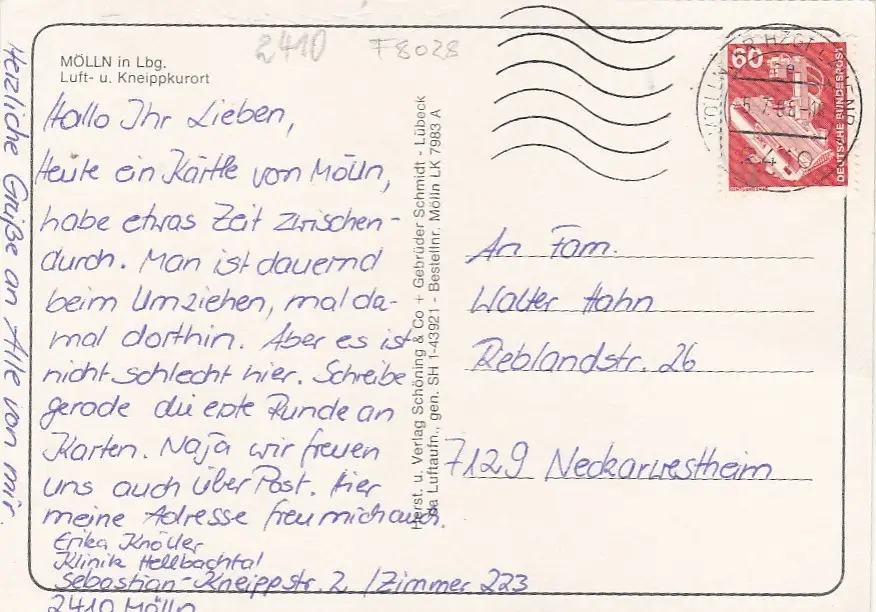 2410 F8028
MÖLLN in Lbg.
Luft- u. Kneippkurort
Hallo Ihr Lieben,
Heute ein Kärtle von Mölln,
habe etwas Zeit zwischen-
durch. Man ist dauernd
beim Umziehen, mal da-
mal dorthin. Aber es ist
nicht schlecht hier. Schreibe
gerade die erste Runde an
Karten. Naja wir freuen
uns auch über Post. Hier
meine Adresse freu mich auch.
Erika Knöller
Klinik Hellbachtal
Sebastian-Kneippstr. 2 / Zimmer 223
2410 Mölln
Herzliche Grüße an Alle von mir.
Herst. u. Verlag Schöning & Co + Gebrüder Schmidt - Lübeck
Luftaufn., gen. SH 1-43921 - Bestellnr. Mölln LK 7983 A
60
DEUTSCHE BUNDESPOST
An Fam.
Walter Hahn
Reblandstr. 26
7129 Neckarwestheim